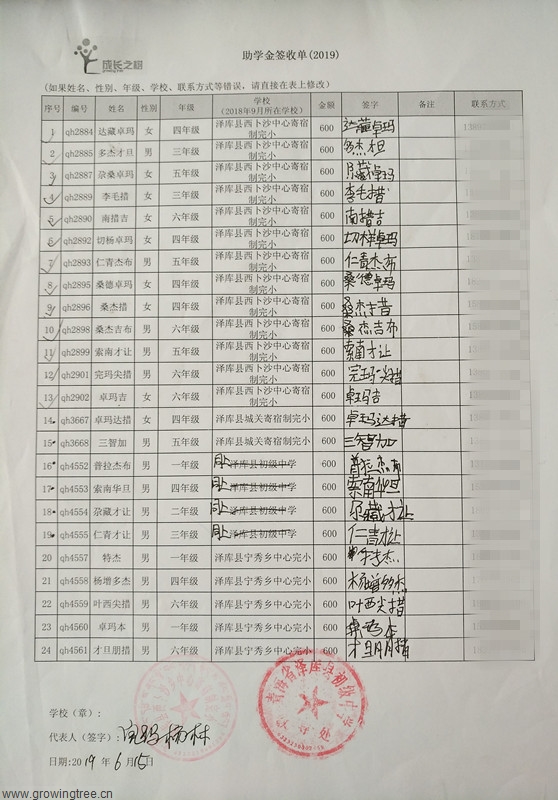 成长之树
助学金签收单(2019)
(如果姓名、性别、年级、学校、联系方式等错误，请直接在表上修改)
序号 编号 姓名 性别 年级 学校(2018年9月所在学校) 金额 签字 备注 联系方式
1 qh2884 达藏卓玛 女 四年级 泽库县西卜沙中心寄宿制完小 600 达藏卓玛
2 qh2885 多杰才旦 男 三年级 泽库县西卜沙中心寄宿制完小 600
3 qh2887 尕桑卓玛 女 五年级 泽库县西卜沙中心寄宿制完小 600
4 qh2889 李毛措 女 三年级 泽库县西卜沙中心寄宿制完小 600 李毛措
5 qh2890 南措吉 女 六年级 泽库县西卜沙中心寄宿制完小 600 南措吉
6 qh2892 切杨卓玛 女 四年级 泽库县西卜沙中心寄宿制完小 600 切样卓玛
7 qh2893 仁青杰布 男 三年级 泽库县西卜沙中心寄宿制完小 600 仁青杰布
8 qh2895 桑德卓玛 女 四年级 泽库县西卜沙中心寄宿制完小 600 桑德卓玛
9 qh2896 桑杰措 女 四年级 泽库县西卜沙中心寄宿制完小 600 桑杰措
10 qh2898 桑杰吉布 男 六年级 泽库县西卜沙中心寄宿制完小 600 桑杰吉布
11 qh2899 索南才让 男 五年级 泽库县西卜沙中心寄宿制完小 600 索南才让
12 qh2901 完玛尖措 男 六年级 泽库县西卜沙中心寄宿制完小 600 完玛尖措
13 qh2902 卓玛吉 女 六年级 泽库县西卜沙中心寄宿制完小 600 卓玛吉
14 qh3667 卓玛达措 女 四年级 泽库县城关寄宿制完小 600 卓玛达措
15 qh3668 三智加 男 五年级 泽库县城关寄宿制完小 600 三智加
16 qh4552 普拉杰布 男 一年级 同上 泽库县初级中学 600
17 qh4553 索南华旦 男 四年级 同上 泽库县初级中学 600 索南华旦
18 qh4554 尕藏才让 男 二年级 同上 泽库县初级中学 600 尕藏才让
19 qh4555 仁青才让 男 三年级 同上 泽库县初级中学 600 仁青才让
20 qh4557 特杰 男 一年级 泽库县宁秀乡中心完小 600
21 qh4558 杨增多杰 男 四年级 泽库县宁秀乡中心完小 600 杨增多杰
22 qh4559 叶西尖措 男 六年级 泽库县宁秀乡中心完小 600 叶西尖措
23 qh4560 卓玛本 男 一年级 泽库县宁秀乡中心完小 600
24 qh4561 才旦朋措 男 六年级 泽库县宁秀乡中心完小 600 才旦朋措
学校（章）：
青海省泽库县初级中学
代表人（签字）：
日期:2019 年 6 月 15 日
www.growingtree.cn
www.growingtree.cn